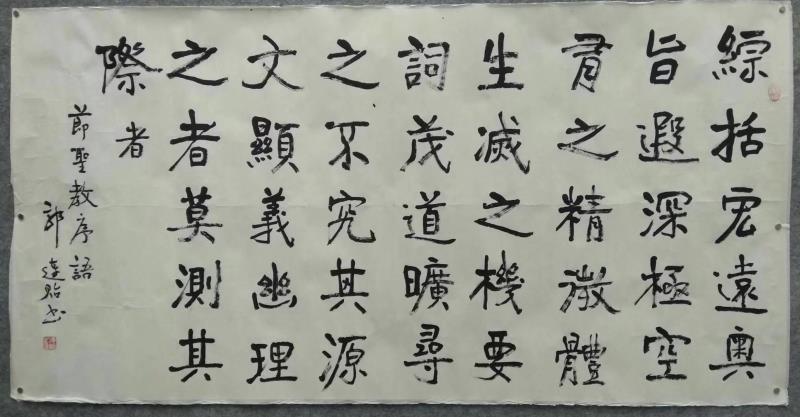 綜括宏遠奧
旨遐深極空
有之精微體
生滅之機要
詞茂道曠尋
之不究其源
文顯義幽理
之者莫測其
際者
節聖教序語
郭達貽书